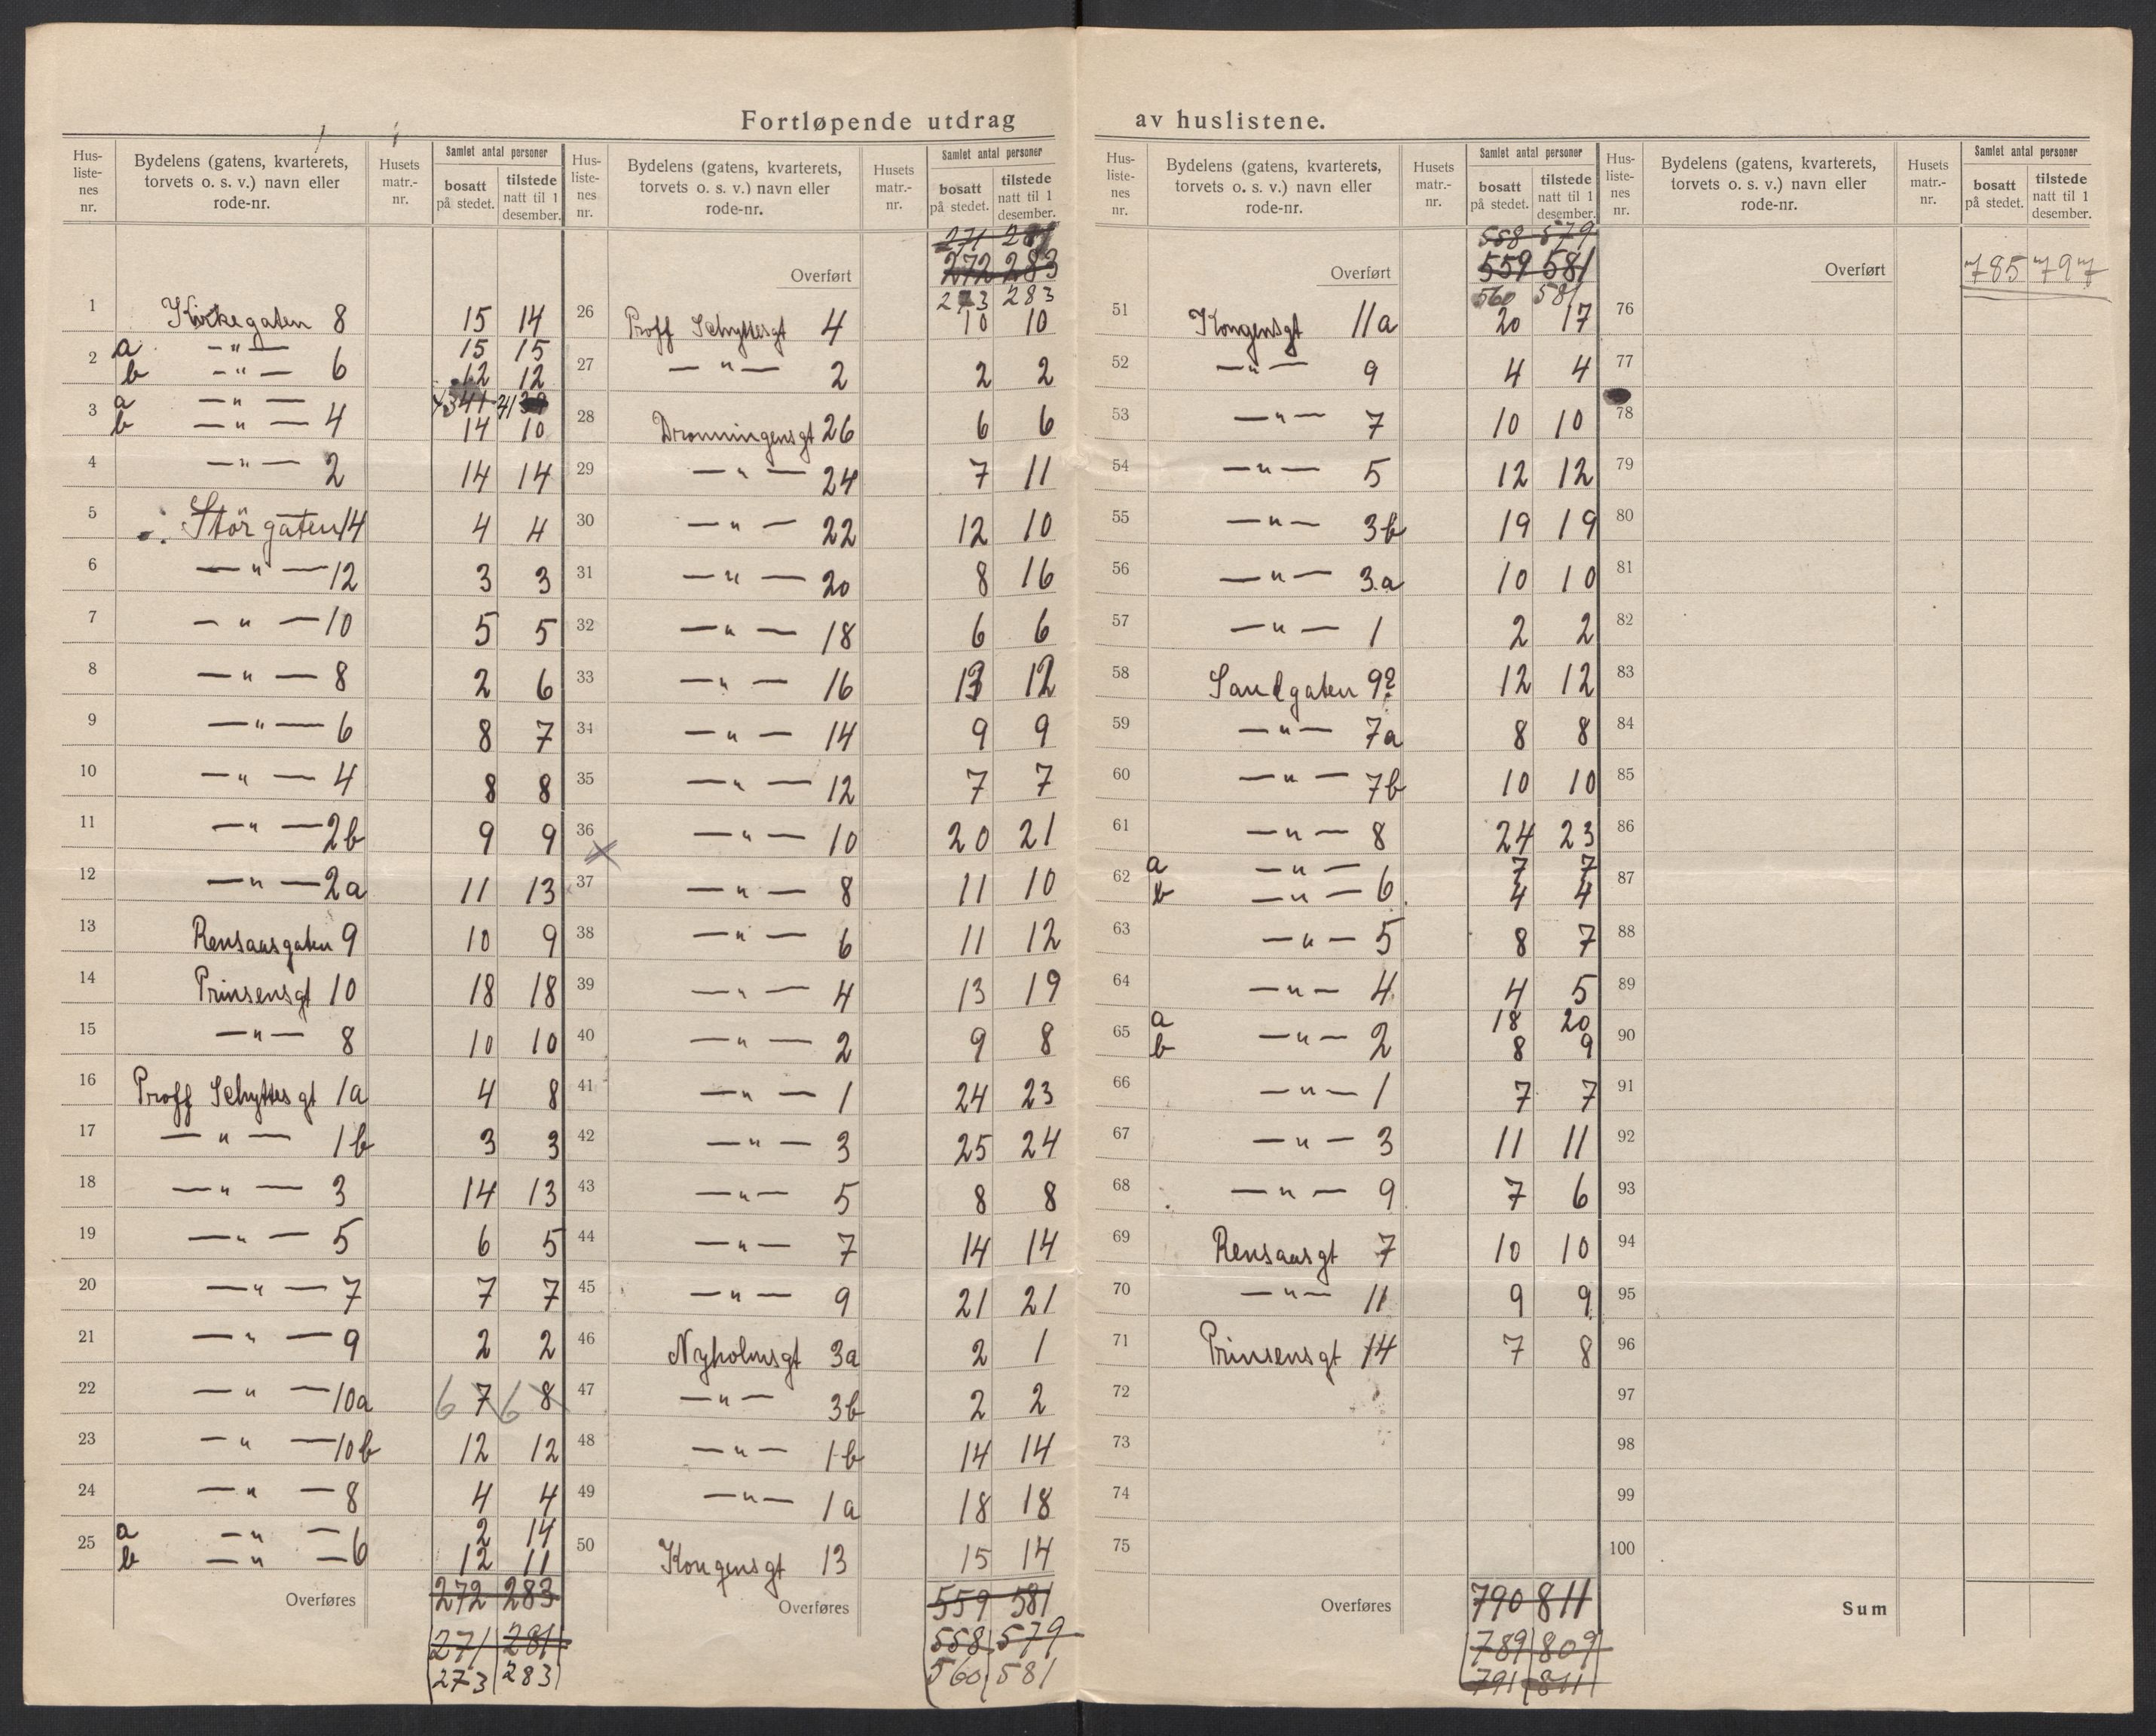 Fortløpende utdrag av huslistene.
Hus-listenes nr. Bydelens (gatens, kvarterets, torvets o. s. v.) navn eller rode-nr. Husets matr.-nr. Samlet antal personer bosatt på stedet. tilstede natt til 1 desember.
1 Kirkegaten 8 15 14
2 a —"— 15 15
b —"— 6 12 12
3 a —"— 43 41
b —"— 4 14 10
4 —"— 2 14 14
5 Störgaten 14 4 4
6 —"— 12 3 3
7 —"— 10 5 5
8 —"— 8 2 6
9 —"— 6 8 7
10 —"— 4 8 8
11 —"— 2b 9 9
12 —"— 2a 11 13
13 Rensaasgaten 9 10 9
14 Prinsensgt 10 18 18
15 —"— 8 10 10
16 Proff Schyttes gt 1a 4 8
17 —"— 1b 3 3
18 —"— 3 14 13
19 —"— 5 6 5
20 —"— 7 7 7
21 —"— 9 2 2
22 —"— 10a 6 7 6 8
23 —"— 10b 12 12
24 —"— 8 4 4
25 a —"— 2 14
b —"— 6 12 11
Overføres 272 283
271 281
273 283
Hus-listenes nr. Bydelens (gatens, kvarterets, torvets o. s. v.) navn eller rode-nr. Husets matr.-nr. Samlet antal personer bosatt på stedet. tilstede natt til 1 desember.
271 281
Overført 272 283
273 283
26 Proff Schyttesgt 4 10 10
27 —"— 2 2 2
28 Dronningensgt 26 6 6
29 —"— 24 7 11
30 —"— 22 12 10
31 —"— 20 8 16
32 —"— 18 6 6
33 —"— 16 13 12
34 —"— 14 9 9
35 —"— 12 7 7
36 —"— 10 20 21
37 —"— 8 11 10
38 —"— 6 11 12
39 —"— 4 13 19
40 —"— 2 9 8
41 —"— 1 24 23
42 —"— 3 25 24
43 —"— 5 8 8
44 —"— 7 14 14
45 —"— 9 21 21
46 Nyholmsgt 3a 2 1
47 —"— 3b 2 2
48 —"— 1b 14 14
49 —"— 1a 18 18
50 Kongensgt 13 15 14
Overføres 559 581
558 579
560 581
Hus-listenes nr. Bydelens (gatens, kvarterets, torvets o. s. v.) navn eller rode-nr. Husets matr.-nr. Samlet antal personer bosatt på stedet. tilstede natt til 1 desember.
558 579
Overført 559 581
560 581
51 Kongensgt 11a 20 17
52 —"— 9 4 4
53 —"— 7 10 10
54 —"— 5 12 12
55 —"— 3b 19 19
56 —"— 3.a 10 10
57 —"— 1 2 2
58 Sandgaten 9? 12 12
59 —"— 7a 8 8
60 —"— 7b 10 10
61 —"— 8 24 23
62 a —"— 7 7
b —"— 6 4 4
63 —"— 5 8 7
64 —"— 4 4 5
65 a 18 20
b —"— 2 8 9
66 —"— 1 7 7
67 —"— 3 11 11
68 —"— 9 7 6
69 Rensaasgt 7 10 10
70 —"— 11 9 9
71 Prinsensgt 14 7 8
72
73
74
75
Overføres 790 811
789 809
791 811
Hus-listenes nr. Bydelens (gatens, kvarterets, torvets o. s. v.) navn eller rode-nr. Husets matr.-nr. Samlet antal personer bosatt på stedet. tilstede natt til 1 desember.
Overført 785 797
76
77
78
79
80
81
82
83
84
85
86
87
88
89
90
91
92
93
94
95
96
97
98
99
100
Sum